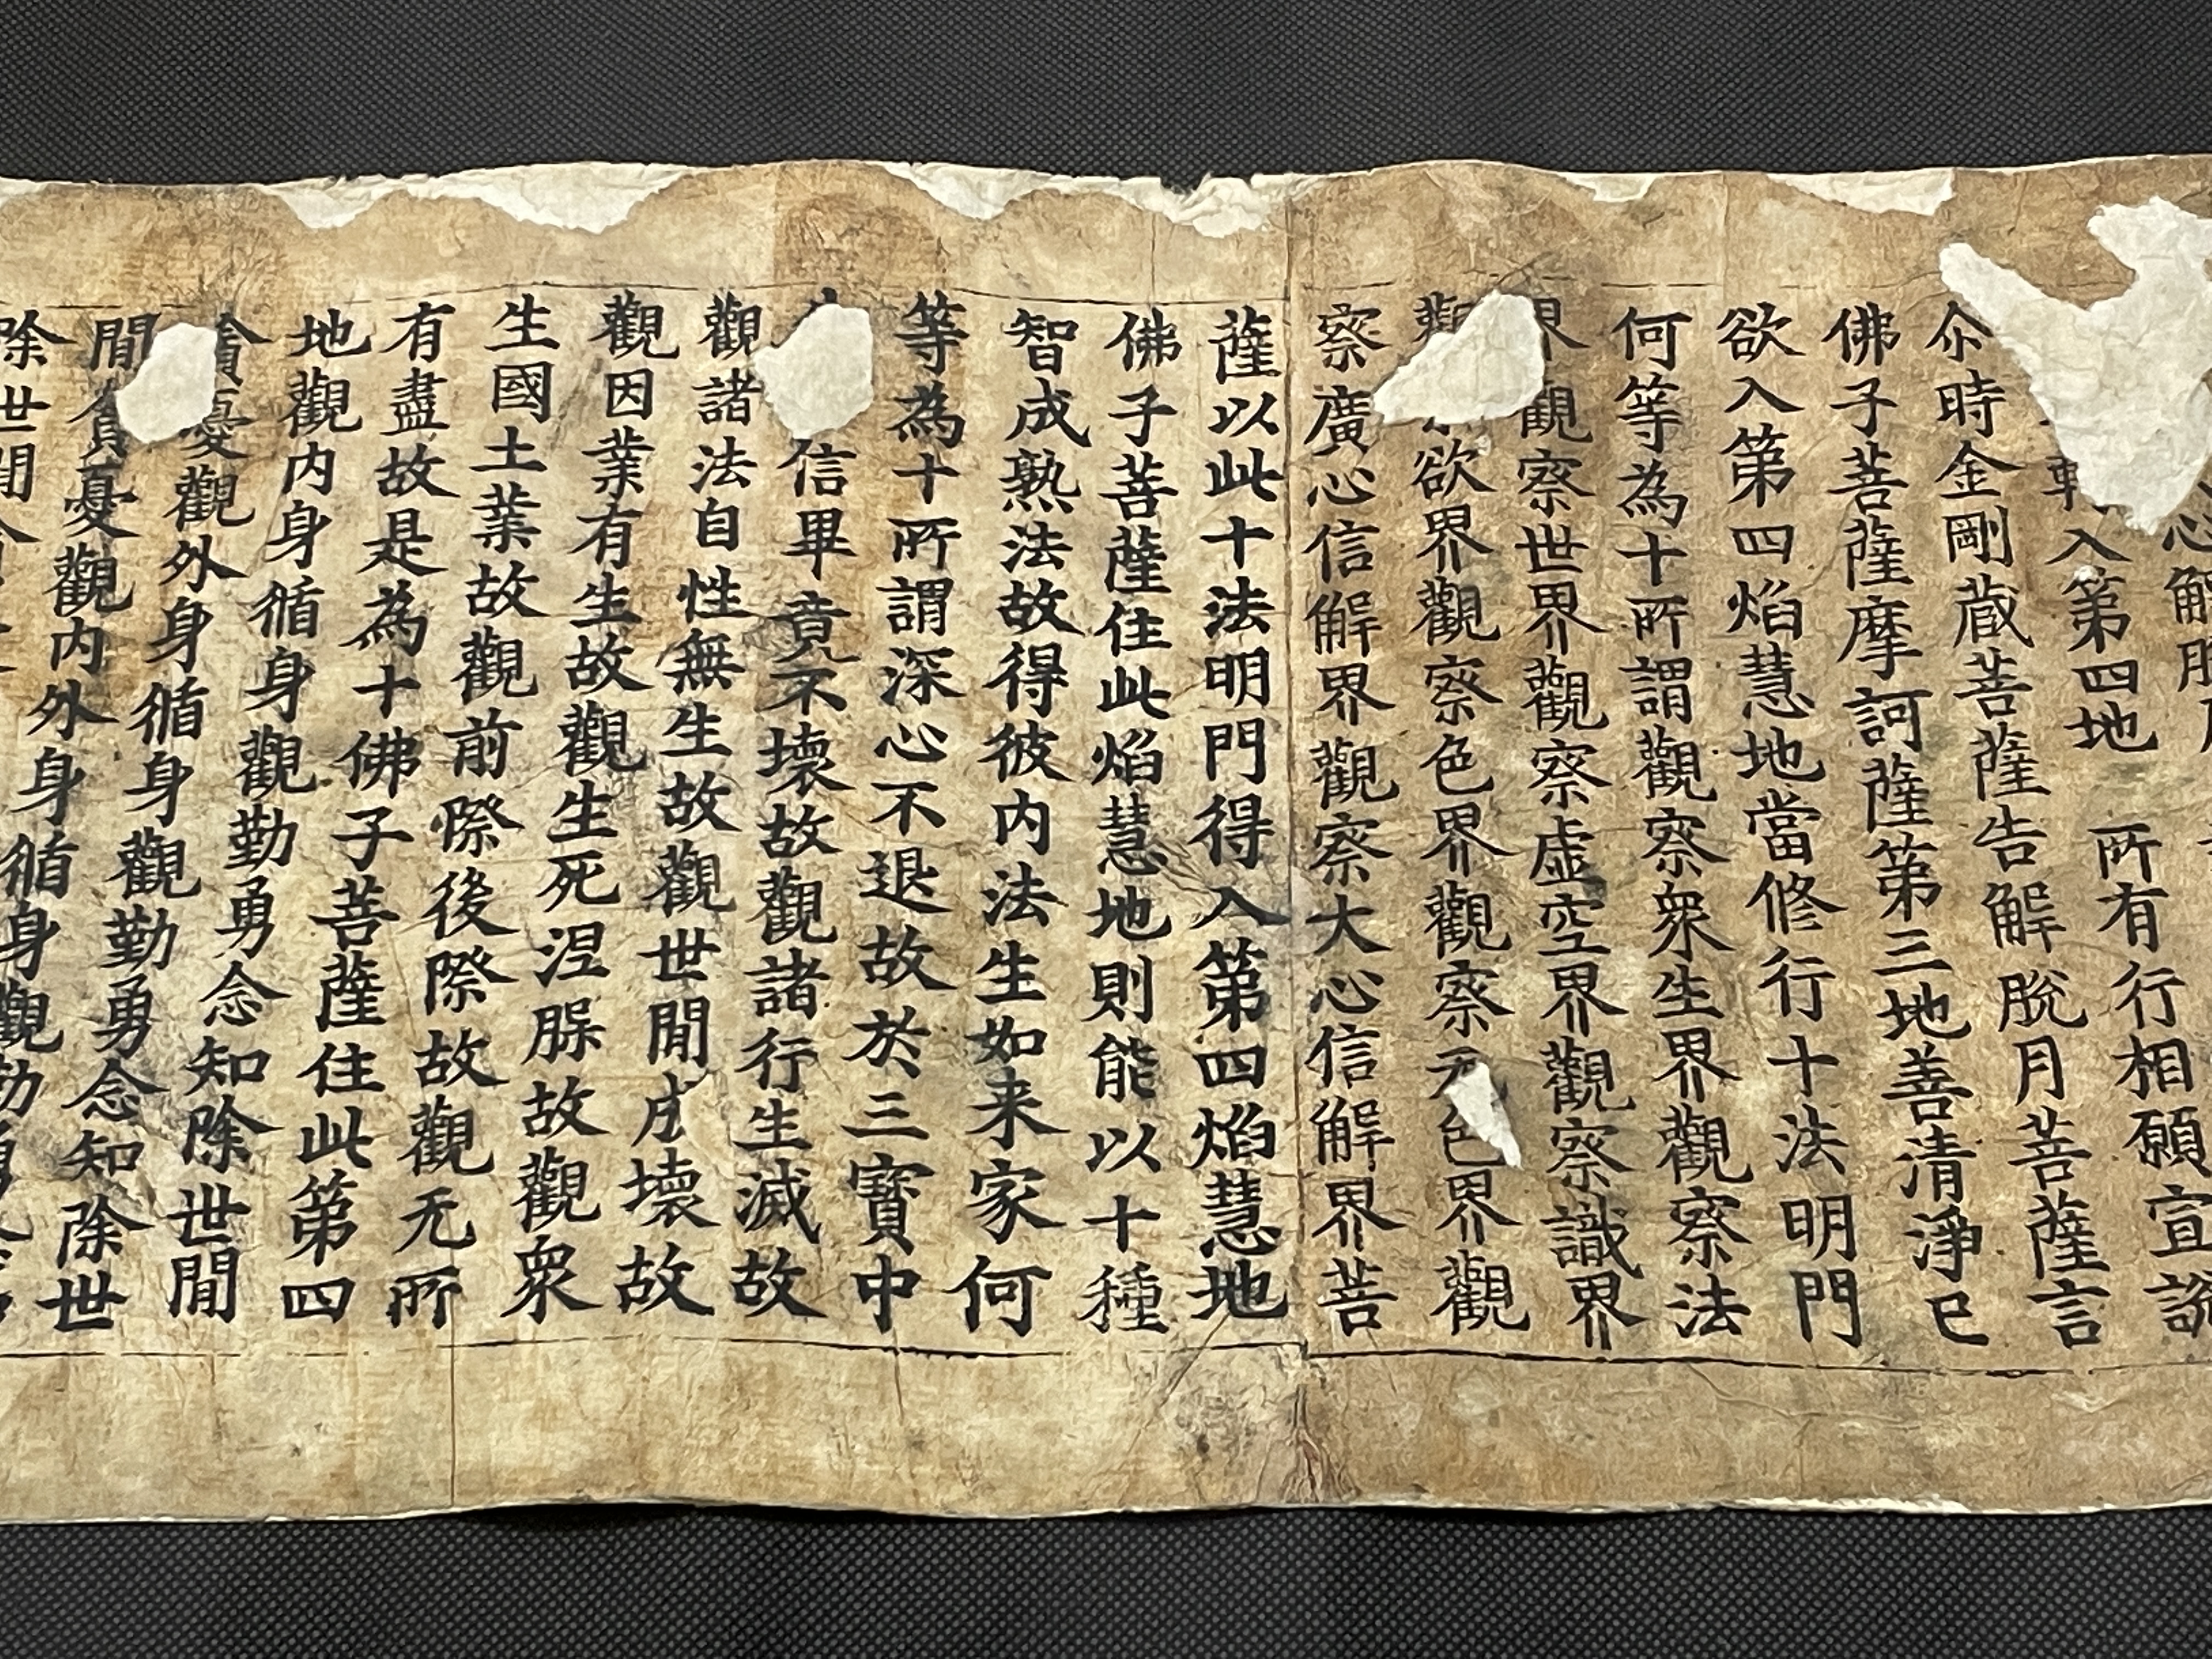 解
轉入第四地　所有行相願宣說
尒時金剛蔵菩薩告解脫月菩薩言
佛子菩薩摩訶薩第三地善清淨已
欲入第四焰慧地當修行十法明門
何等為十所謂觀察眾生界觀察法
界觀察世界觀察虛空界觀察識界
觀欲界觀察色界觀察无色界觀
察廣心信解界觀察大心信解界菩
薩以此十法明門得入第四焰慧地
佛子菩薩住此焰慧地則能以十種
智成熟法故得彼内法生如来家何
等為十所謂深心不退故於三寶中
信畢竟不壞故觀諸行生滅故
觀諸法自性無生故觀世間成壞故
觀因業有生故觀生死涅槃故觀眾
生國土業故觀前際後際故觀无所
有盡故是為十佛子菩薩住此第四
地觀内身循身觀勤勇念知除世間
貪憂觀外身循身觀勤勇念知除世
間貪憂觀内外身循身觀勤
除世間